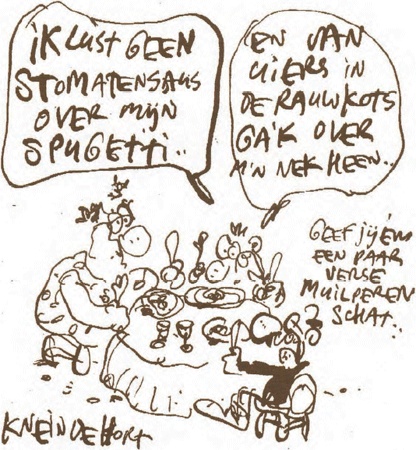 IK LUST GEEN
STOMATENSAUS
OVER MIJN
SPUGETTI..
EN VAN
UIERS IN
DE RAUWKOTS
GA'K OVER
M'N NEK HEEN..
GEEF JIJ EM
EEN PAAR
VERSE
MUILPEREN
SCHAT..